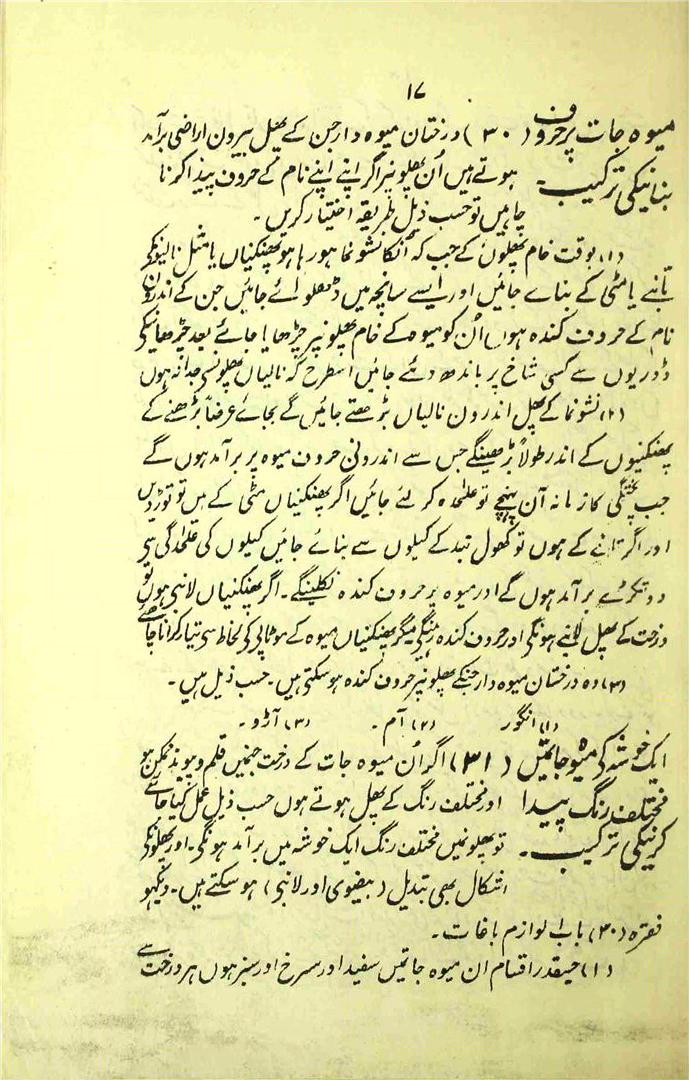 ۱۷
میوہ جات پر حروف (۳۰) درختان میوہ دار جن کے پھل بیرون اراضی برآمد
بنانیکی ترکیب۔ ہوتے ہیں اُن پھلونپر اگر اپنے اپنے نام کے حروف پیدا کرنا
چاہیں تو حسب ذیل طریقہ اختیار کریں۔
(۱) بوقت خام پھلوں کے جب کہ اُنکا نشونما ہو رہا ہو پھنکنیاں یا مثل نالیونکر
تانبے یا مٹی کے بناے جائیں اور ایسے سانچہ میں ڈھلوائے جائیں جن کے اندرون
نام کے حروف کندہ ہوں اُن کو میوہ کے خام پھلونپر چڑھایا جائے بعد چڑھانیکی
ڈوریوں سے کسی شاخ پر باندھ دئے جائیں اسطرح کہ نالیاں پھلونسی جدا نہ ہوں
(۲) نشونما کے پھل اندرون نالیاں بڑھتے جائیں گے بجائے عرضاً بڑھنے کے
پھنکنیوں کے اندر طولاً بڑھینگے جس سے اندرونی حروف میوہ پر برآمد ہوں گے
جب پختگی کا زمانہ آن پہنچے تو علٰحدہ کر لئے جائیں اگر پھنکنیاں مٹی کے ہیں تو توڑدیں
اور اگر تانبے کے ہوں تو کھول تبد کے کیلوں سے بنائے جائیں کیلوں کی علٰحدگی ہی
دو ٹکڑے برآمد ہوں گے اور میوہ پر حروف کندہ نکلینگے۔ اگر پھنکنیاں لانبی ہوں تو
درخت کے پھل لانبے ہونگی اور حروف کندہ ہینگی مگر پھنکنیاں میوہ کے موٹاپی کی لحاظ سی تیار کرانا چاہئے
(۳) وہ درختان میوہ دار جنکے پھلونپر حروف کندہ ہو سکتی ہیں۔ حسب ذیل ہیں۔
(۱) انگور (۲) آم۔ (۳) آڑو۔
ایک خوشہ کی میوہ جاتمیں (۳۱) اگر اُن میوہ جات کے درخت جنمیں قلم و پیوند ممکن ہو
مختلف رنگ پیدا اور مختلف رنگ کے پھل ہوتے ہوں حسب ذیل عمل کیا جائے
کرنیکی ترکیب۔ تو پھلونمیں مختلف رنگ ایک خوشہ میں برآمد ہونگی۔ اور پھلونکی
اشکال بھی تبدیل (بیضوی اور لانبی) ہو سکتے ہیں۔ دیکھو
فقرہ (۳۰) باب لوازم باغات۔
(۱) جسقدر اقسام ان میوہ جاتیں سفید اور سرخ اور سبز ہوں ہر درخت سے